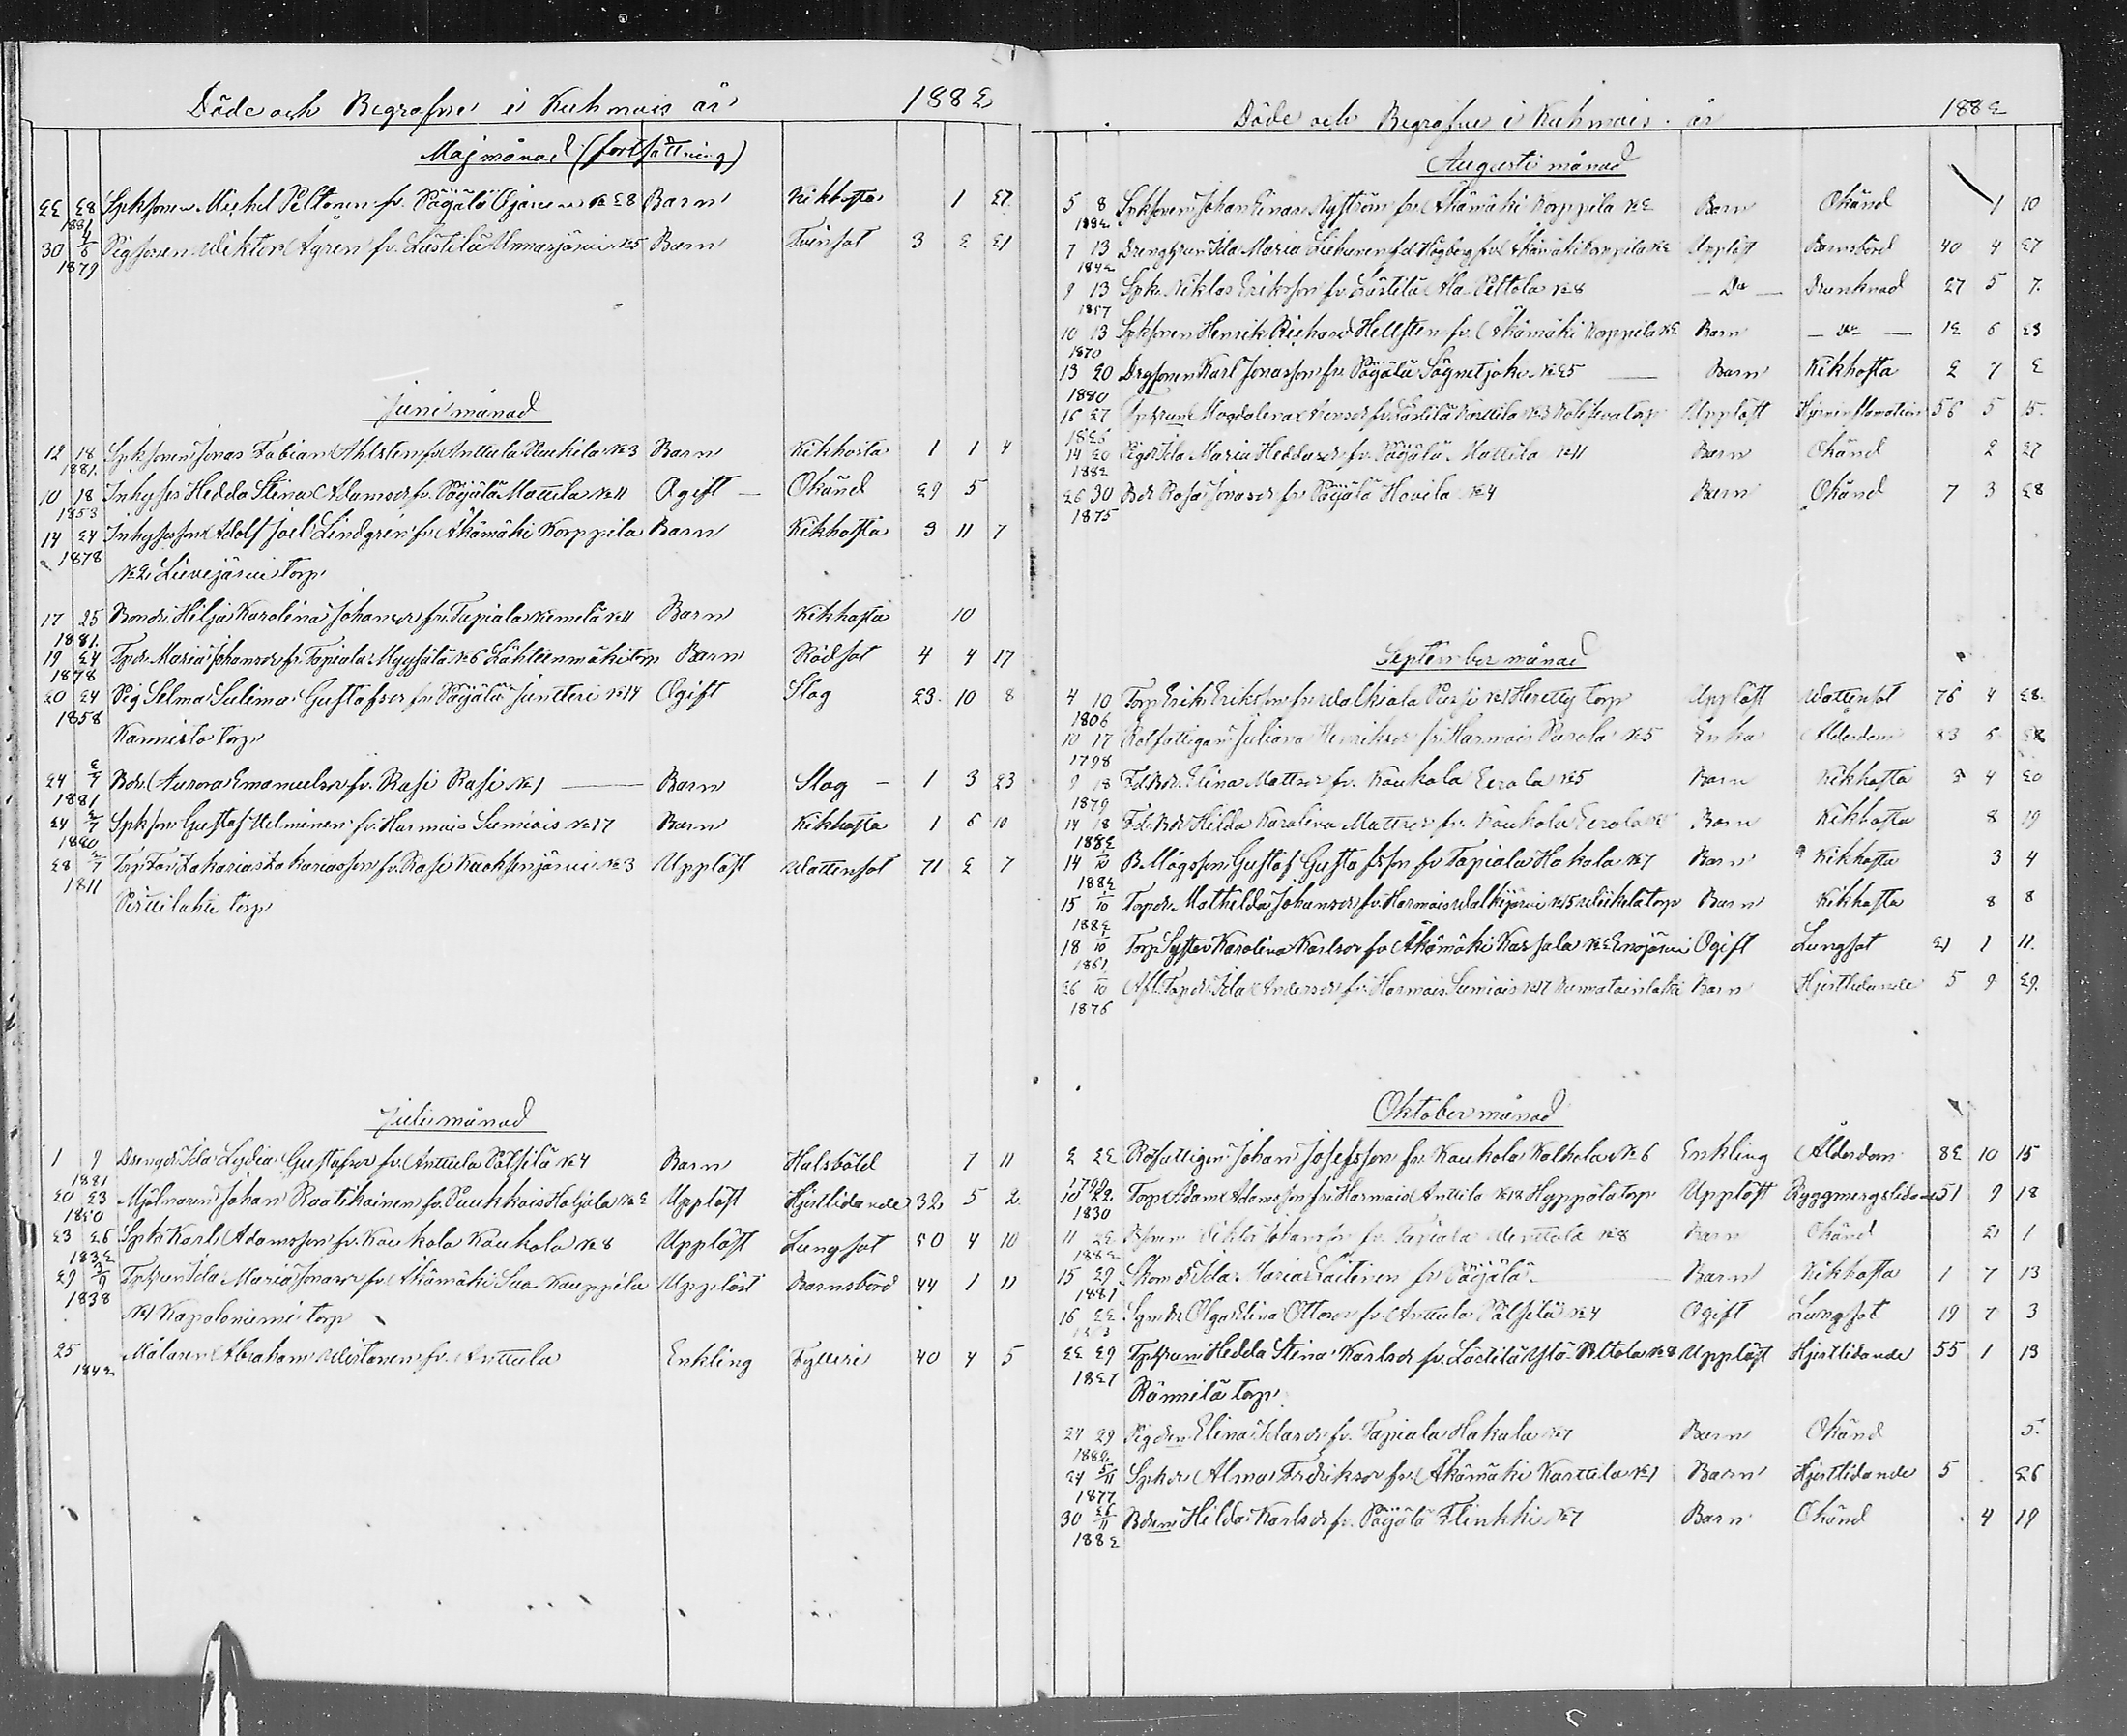 Döde och Begrafne i Kuhmois år 1882
Maj månad (fortsättning)
22 28 Spksonen Michel Peltonen fr. Päijälä Ojanen № 28 Barn Kikhosta 1 27
1881
30 4/6 Pigsonen Wiktor Ågren fr. Lästilä Unnasjärvi № 5 Barn Tvinsot 3 2 21
1879
Juni månad
12 18 Spksonen Jonas Fabian Ahlsten fr. Anttula Reukila № 3 Barn Kikhosta 1 1 4
1881.
10 18 Inhyses Hedda Stina Adamsdr fr. Päijälä Mattila № 11 Ogift — Okänd 29 5
1853
14 24 Inhysesson Adolf Joel Lindgren fr. Åkämäki Korppila Barn Kikhosta 3 11 7
1878
№ 2 Lievejärvi torp
17 25 Bondr. Hilja Karolina Johansdr fr. Tapiala Niemelä № 11 Barn Kikhosta 10
1881.
19 24 Tpdr. Maria Johansdr fr. Tapiala Myysälä № 6 Lähteenmäki torp Barn Rödsot 4 4 17
1878
20 24 Pig Selma Sulima Gustafsdr fr. Päijälä Juntteri № 14 Ogift Slag 23. 10 8
1858
Kannisto torp
24 2/7 Bdr. Aurora Emanuelsdr fr. Rasi Rasi № 1 — Barn Slag — 1 3 23
1881
24 2/7 Spkson Gustaf Helminen fr. Harmois Sumiais № 17 Barn Kikhosta 1 6 10
1880
28 2/7 Torp.Far Zakarias Zakariasson fr. Rasi Kaoksenjärvi № 3 Upplöst Wattensot 71 2 7
1811
Perttilahti torp
Juli månad
1 9 Drengdr Ida Lydia Gustafsdr fr. Anttula Pälsilä № 4 Barn Halsböld 7 11
1881
20 23 Mjölnaren Johan Raatikainen fr. Puukkois Haljala № 2 Upplöst Hjertlidande 32 5 2
1850
23 26 Spk. Karl Adamsson fr. Kaukola Kaukola № 8 Upplöst Lungsot 50 4 10
1832
29 3/9 Tpfrun Ida Maria Jonasdr fr. Åkämäki Saa Kauppila Upplöst Barnsbörd 44 1 11
1838
№ 1 Kapaloniemi torp
25 Målaren Abraham Wistonen fr. Anttula Enkling Fylleri 40 4 5
1842
Döde och Begrafne i Kuhmois år 1882
Augusti månad
5 8 Spksonen Johan Einar Nyström fr. Åkämäki Korppila № 2 Barn Okänd 1 10
1882
7 13 Drengfrun Ida Maria Liehunen fdd Högberg fr. Åkämäki Korppila № 2 Upplöst Barnsbörd 40 4 27
1842
9 13 Spk. Niklas Eriksson fr. Lästilä Ala Peltola № 8 — Do — Drunknad 27 5 7.
1857
10 13 Spksonen Henrik Richard Hellsten fr. Åkämäki Korppila № 2 Barn — do — 12 6 23
1870
13 20 Drgsonen Karl Jonasson fr. Päijälä Sägnetjoki № 25 — Barn Kikhosta 2 7 2
1880
16 27 Tpfrun Magdalena Arensdr fr. Lästilä Kerttila № 3 torp Upplöst Hjerninflamation 56 5 15.
1826
14 20 Pigdr Ida Maria Heddasdr fr. Päijälä Mattila № 11 Barn Okänd 2 27
1882
26 30 Bdr Rosa Jonasdr fr. Päijälä Hovila № 4 Barn Okänd 7 3 28
1875
September månad
4 10 Torp. Erik Eriksson fr. Walkiala Pussi № 1 Heretty torp Upplöst Wattensot 76 4 28.
1806
10 17 Rotfattigan Juliana Henriksdr fr. Harmois Parola № 5 Enka Ålderdom 83 6
1798
9 18 Fd.Bdr. Elina Mattsdr fr. Kaukola Eerola № 5 Barn Kikhosta 3 4 20
1879
14 18 Fd. Bdr Hilda Karolina Mattsdr fr. Kaukola Eerola № 5 Barn Kikhosta 8 19
1882
14 1/10 B. Mågsson Gustaf Gustafsson fr Tapiala Hakala № 7 Barn Kikhosta 3 4
1882
15 1/10 Torpdr. Mathilda Johansdr fr. Harmois Walkijärvi № 15 torp Barn Kikhosta 8 8
1882
18 1/10 Torp.Syster Karolina Karlsdr fr Åkämäki Kassala № 2 Enojärvi Ogift Lungsot 21 1 11.
1861
26 1/10 Afl. Torpdr. Ida Andersdr fr. Harmois Sumiais № 17 Barn Hjertlidande 5 9 29.
1876
Oktober månad
2 22 Rotfattigen Johan Josefsson fr. Kaukola Kalhola № 6 Enkling Ålderdom 82 10 15
1799
10 22 Torp. Adam Adamsson fr. Harmois Anttila № 18 Hyppölä torp Upplöst Ryggmergslidan 51 9 18
1830
11 22 Johansson fr. Tapiala № 8 Barn Okänd 21 1
1882
15 29 Skomdr Ida Maria Laitinen fr. Päijälä — Barn Kikhosta 1 7 13
1881
16 22 Olga Elina Ottosdr fr. Anttula Pälsilä № 4 Ogift Lungsot 19 7 3
22 29 Tpfrun Hedda Stina Karlsdr fr. Lästilä Ylä Peltola № 8 Upplöst Hjertlidande 55 1 13
1827
Rönnilä torp.
24 29 Pigdren Elina Idasdr fr. Tapiala Hakala № 7 Barn Okänd 5.
1882
24 5/11 Spkdr Alma Fredriksdr fr. Åkämäki Karttila № 1 Barn Hjertlidande 5 26
1877
30 26/11 Bdren Hilda Karlsdr fr. Päijälä Flinkki № 7 Barn Okänd 4 19
1882